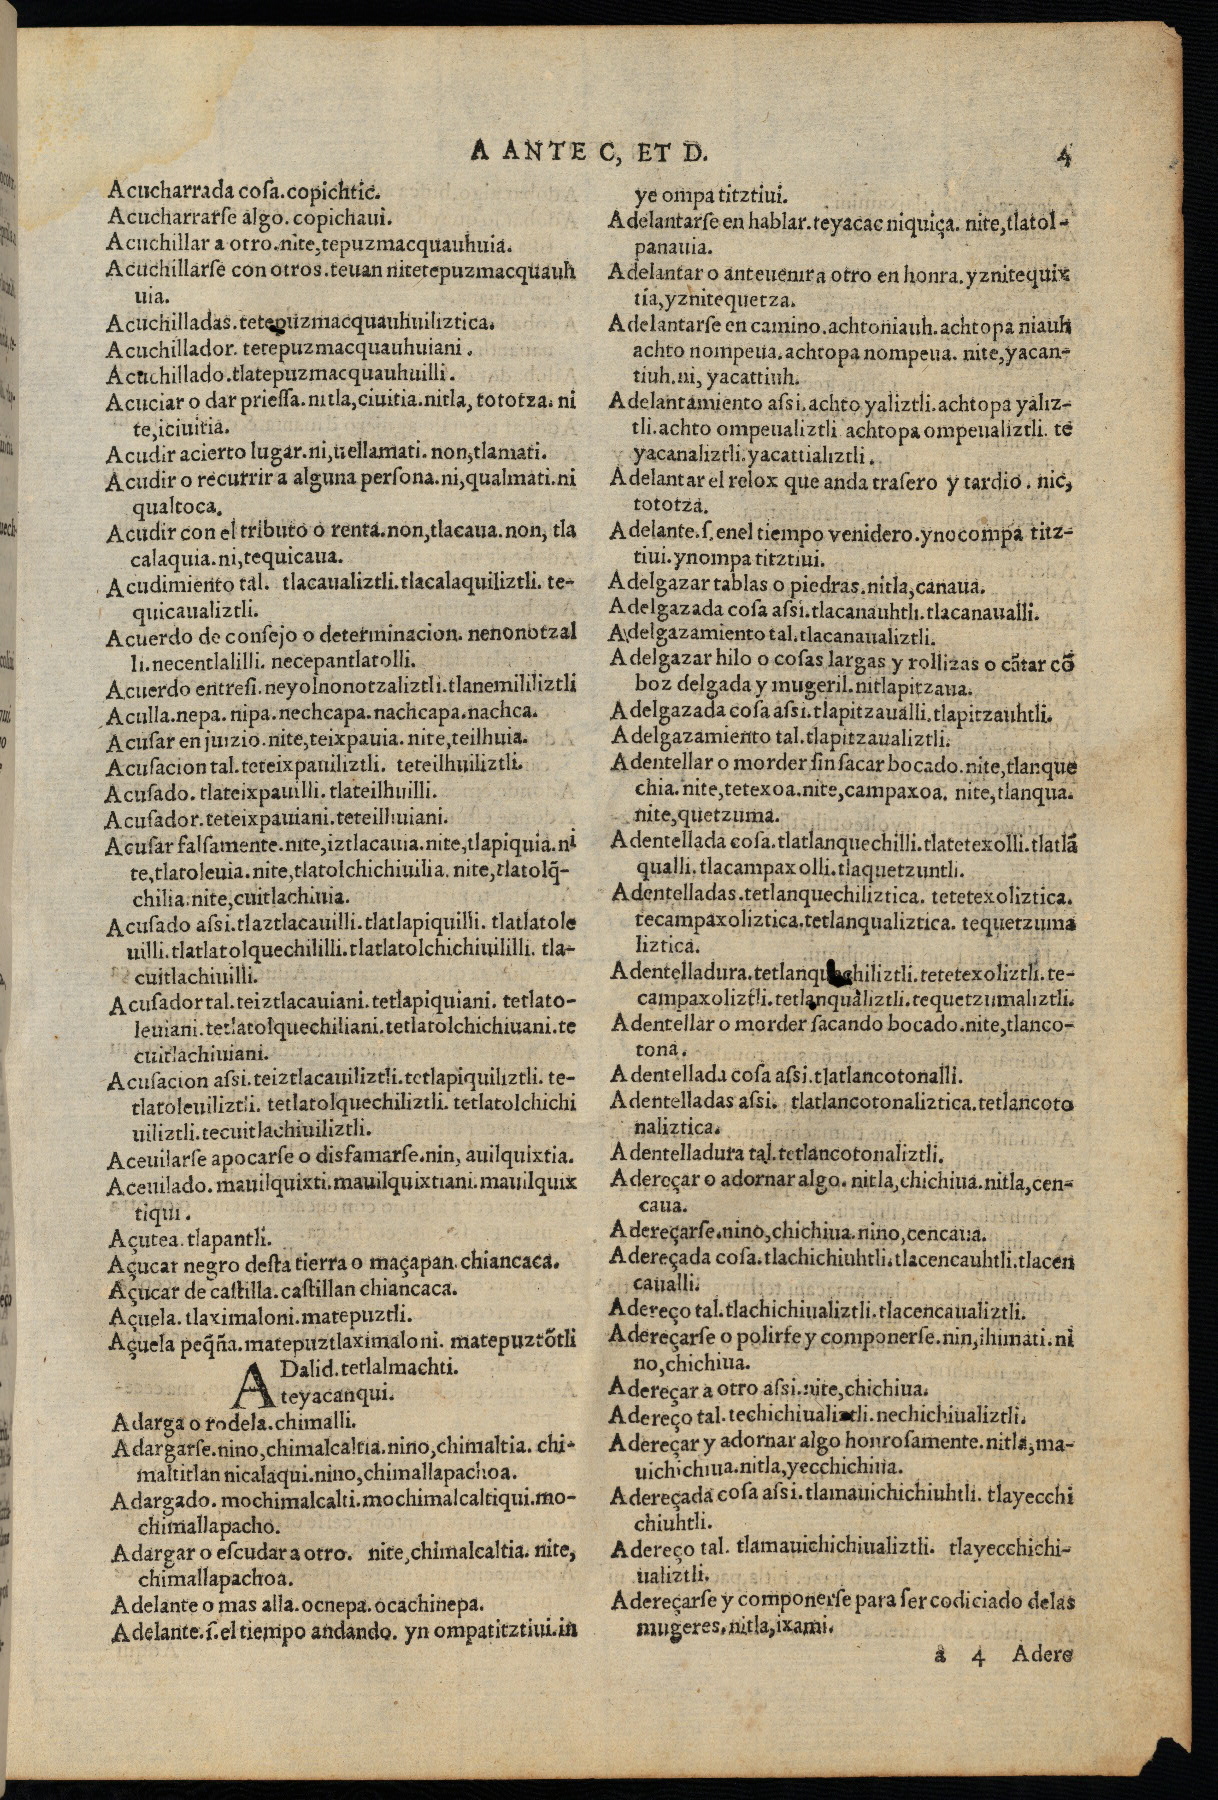 A ANTE C, ET D.
4
Acucharrada cosa. copichtic.
Acucharrarse algo. copichaui.
Acuchillar a otro. nite, tepuzmacquauhuia.
Acuchillarse con otros. teuan nitetepuzmacquauh
uia.
Acuchilladas. tetepuzmacquauhuiliztica.
Acuchillador. tetepuzmacquauhuiani.
Acuchillado. tlatepuzmacquauhuilli.
Acuciar o dar priessa. nitla, ciuitia. nitla, tototza. ni
te, iciuitia.
Acudir acierto lugar. ni, uellamati. non, tlamati.
Acudir o recurrir a alguna persona. ni, qualmati. ni
qualtoca.
Acudir con el tributo o renta. non, tlacaua. non, tla
calaquia. ni, tequicaua.
Acudimiento tal. tlacaualiztli. tlacalaquiliztli. te-
quicaualiztli.
Acuerdo de consejo o determinacion. nenonotzal
li. necentlalilli. necepantlatolli.
Acuerdo entresi. neyolnonotzaliztli. tlanemililiztli
Aculla. nepa. nipa. nechcapa. nachcapa. nachca.
Acusar en juizio. nite, teixpauia. nite, teilhuia.
Acusacion tal. teteixpauiliztli. teteilhuiliztli.
Acusado. tlateixpauilli. tlateilhuilli.
Acusador. teteixpauiani. teteilhuiani.
Acusar falsamente. nite, iztlacauia. nite, tlapiquia. ni
te, tlatoleuia. nite, tlatolchichiuilia. nite, tlatolq̃-
chilia. nite, cuitlachiuia.
Acusado assi. tlaztlacauilli. tlatlapiquilli. tlatlatole
uilli. tlatlatolquechililli. tlatlatolchichiuililli. tla-
cuitlachiuilli.
Acusador tal. teiztlacauiani. tetlapiquiani. tetlato-
leuiani. tetlatolquechiliani. tetlatolchichiuani. te
cuitlachiuiani.
Acusacion assi. teiztlacauiliztli. tetlapiquiliztli. te-
tlatoleuiliztli. tetlatolquechiliztli. tetlatolchichi
uiliztli. tecuitlachiuiliztli.
Aceuilarse apocarse o disfamarse. nin, auilquixtia.
Aceuilado. mauilquixti. mauilquixtiani. mauilquix
tiqui.
Açutea. tlapantli.
Açucar negro desta tierra o maçapan. chiancaca.
Açucar de castilla. castillan chiancaca.
Açuela. tlaximaloni. matepuztli.
Açuela peq̃ña. matepuztlaximaloni. matepuztõtli
ADalid. tetlalmachti.
teyacanqui.
Adarga o rodela. chimalli.
Adargarse. nino, chimalcaltia. nino, chimaltia. chi-
maltitlan nicalaqui. nino, chimallapachoa.
Adargado. mochimalcalti. mochimalcaltiqui. mo-
chimallapacho.
Adargar o escudar a otro. nite, chimalcaltia. nite,
chimallapachoa.
Adelante o mas alla. ocnepa. ocachinepa.
Adelante. s. el tiempo andando. yn ompatitztiui. in
ye ompa titztiui.
Adelantarse en hablar. teyacac niquiça. nite, tlatol-
panauia.
Adelantar o anteuenir a otro en honra. yznitequix
tia, yznitequetza.
Adelantarse en camino. achtoniauh. achtopa niauh
achto nompeua. achtopa nompeua. nite, yacan-
tiuh. ni, yacattiuh.
Adelantamiento assi. achto yaliztli. achtopa yaliz-
tli. achto ompeualiztli achtopa ompeualiztli. te
yacanaliztli. yacattializtli.
Adelantar el relox que anda trasero y tardio. nic,
tototza.
Adelante. s. enel tiempo venidero. ynocompa titz-
tiui. ynompa titztiui.
Adelgazar tablas o piedras. nitla, canaua.
Adelgazada cosa assi. tlacanauhtli. tlacanaualli.
Adelgazamiento tal. tlacanaualiztli.
Adelgazar hilo o cosas largas y rollizas o cãtar cõ
boz delgada y mugeril. nitlapitzaua.
Adelgazada cosa assi. tlapitzaualli. tlapitzauhtli.
Adelgazamiento tal. tlapitzaualiztli.
Adentellar o morder sin sacar bocado. nite, tlanque
chia. nite, tetexoa. nite, campaxoa. nite, tlanqua.
nite, quetzuma.
Adentellada cosa. tlatlanquechilli. tlatetexolli. tlatlã
qualli. tlacampaxolli. tlaquetzuntli.
Adentelladas. tetlanquechiliztica. tetetexoliztica.
tecampaxoliztica. tetlanqualiztica. tequetzuma
liztica.
Adentelladura. tetlanquechiliztli. tetetexoliztli. te-
campaxoliztli. tetlanqualiztli. tequetzumaliztli.
Adentellar o morder sacando bocado. nite, tlanco-
tona.
Adentellada cosa assi. tlatlancotonalli.
Adentelladas assi. tlatlancotonaliztica. tetlancoto
naliztica.
Adentelladura tal. tetlancotonaliztli.
Adereçar o adornar algo. nitla, chichiua. nitla, cen-
caua.
Adereçarse. nino, chichiua. nino, cencaua.
Adereçada cosa. tlachichiuhtli. tlacencauhtli. tlacen
caualli.
Adereço tal. tlachichiualiztli. tlacencaualiztli.
Adereçarse o polirse y componerse. nin, ihimati. ni
no, chichiua.
Adereçar a otro assi. nite, chichiua.
Adereço tal. techichiualiztli. nechichiualiztli.
Adereçar y adornar algo honrosamente. nitla, ma-
uichichiua. nitla, yecchichiua.
Adereçada cosa assi. tlamauichichiuhtli. tlayecchi
chiuhtli.
Adereço tal. tlamauichichiualiztli. tlayecchichi-
ualiztli.
Adereçarse y componerse para ser codiciado delas
mugeres. nitla, ixami.
a 4 Adere